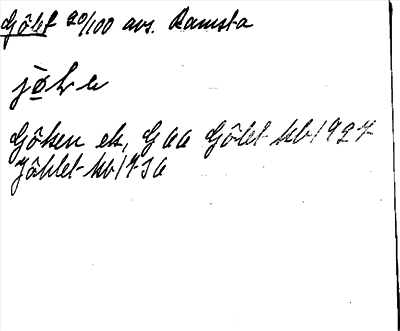 Gölet 20/100 avs. Ramsta
Göken ek, G a a Gölet kb 1927
Jöhlet kb 1736